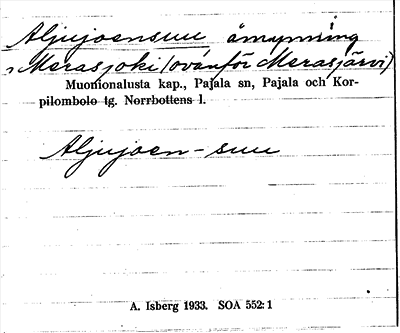 Aljujoensuu åmynning
i Merasjoki (ovanför Merasjärvi)
Muonionalusta kap., Pajala sn, Pajala och Kor-
pilombolo tg. Norrbottens l.
Aljujoen-suu
A. Isberg 1933. SOA 552:1